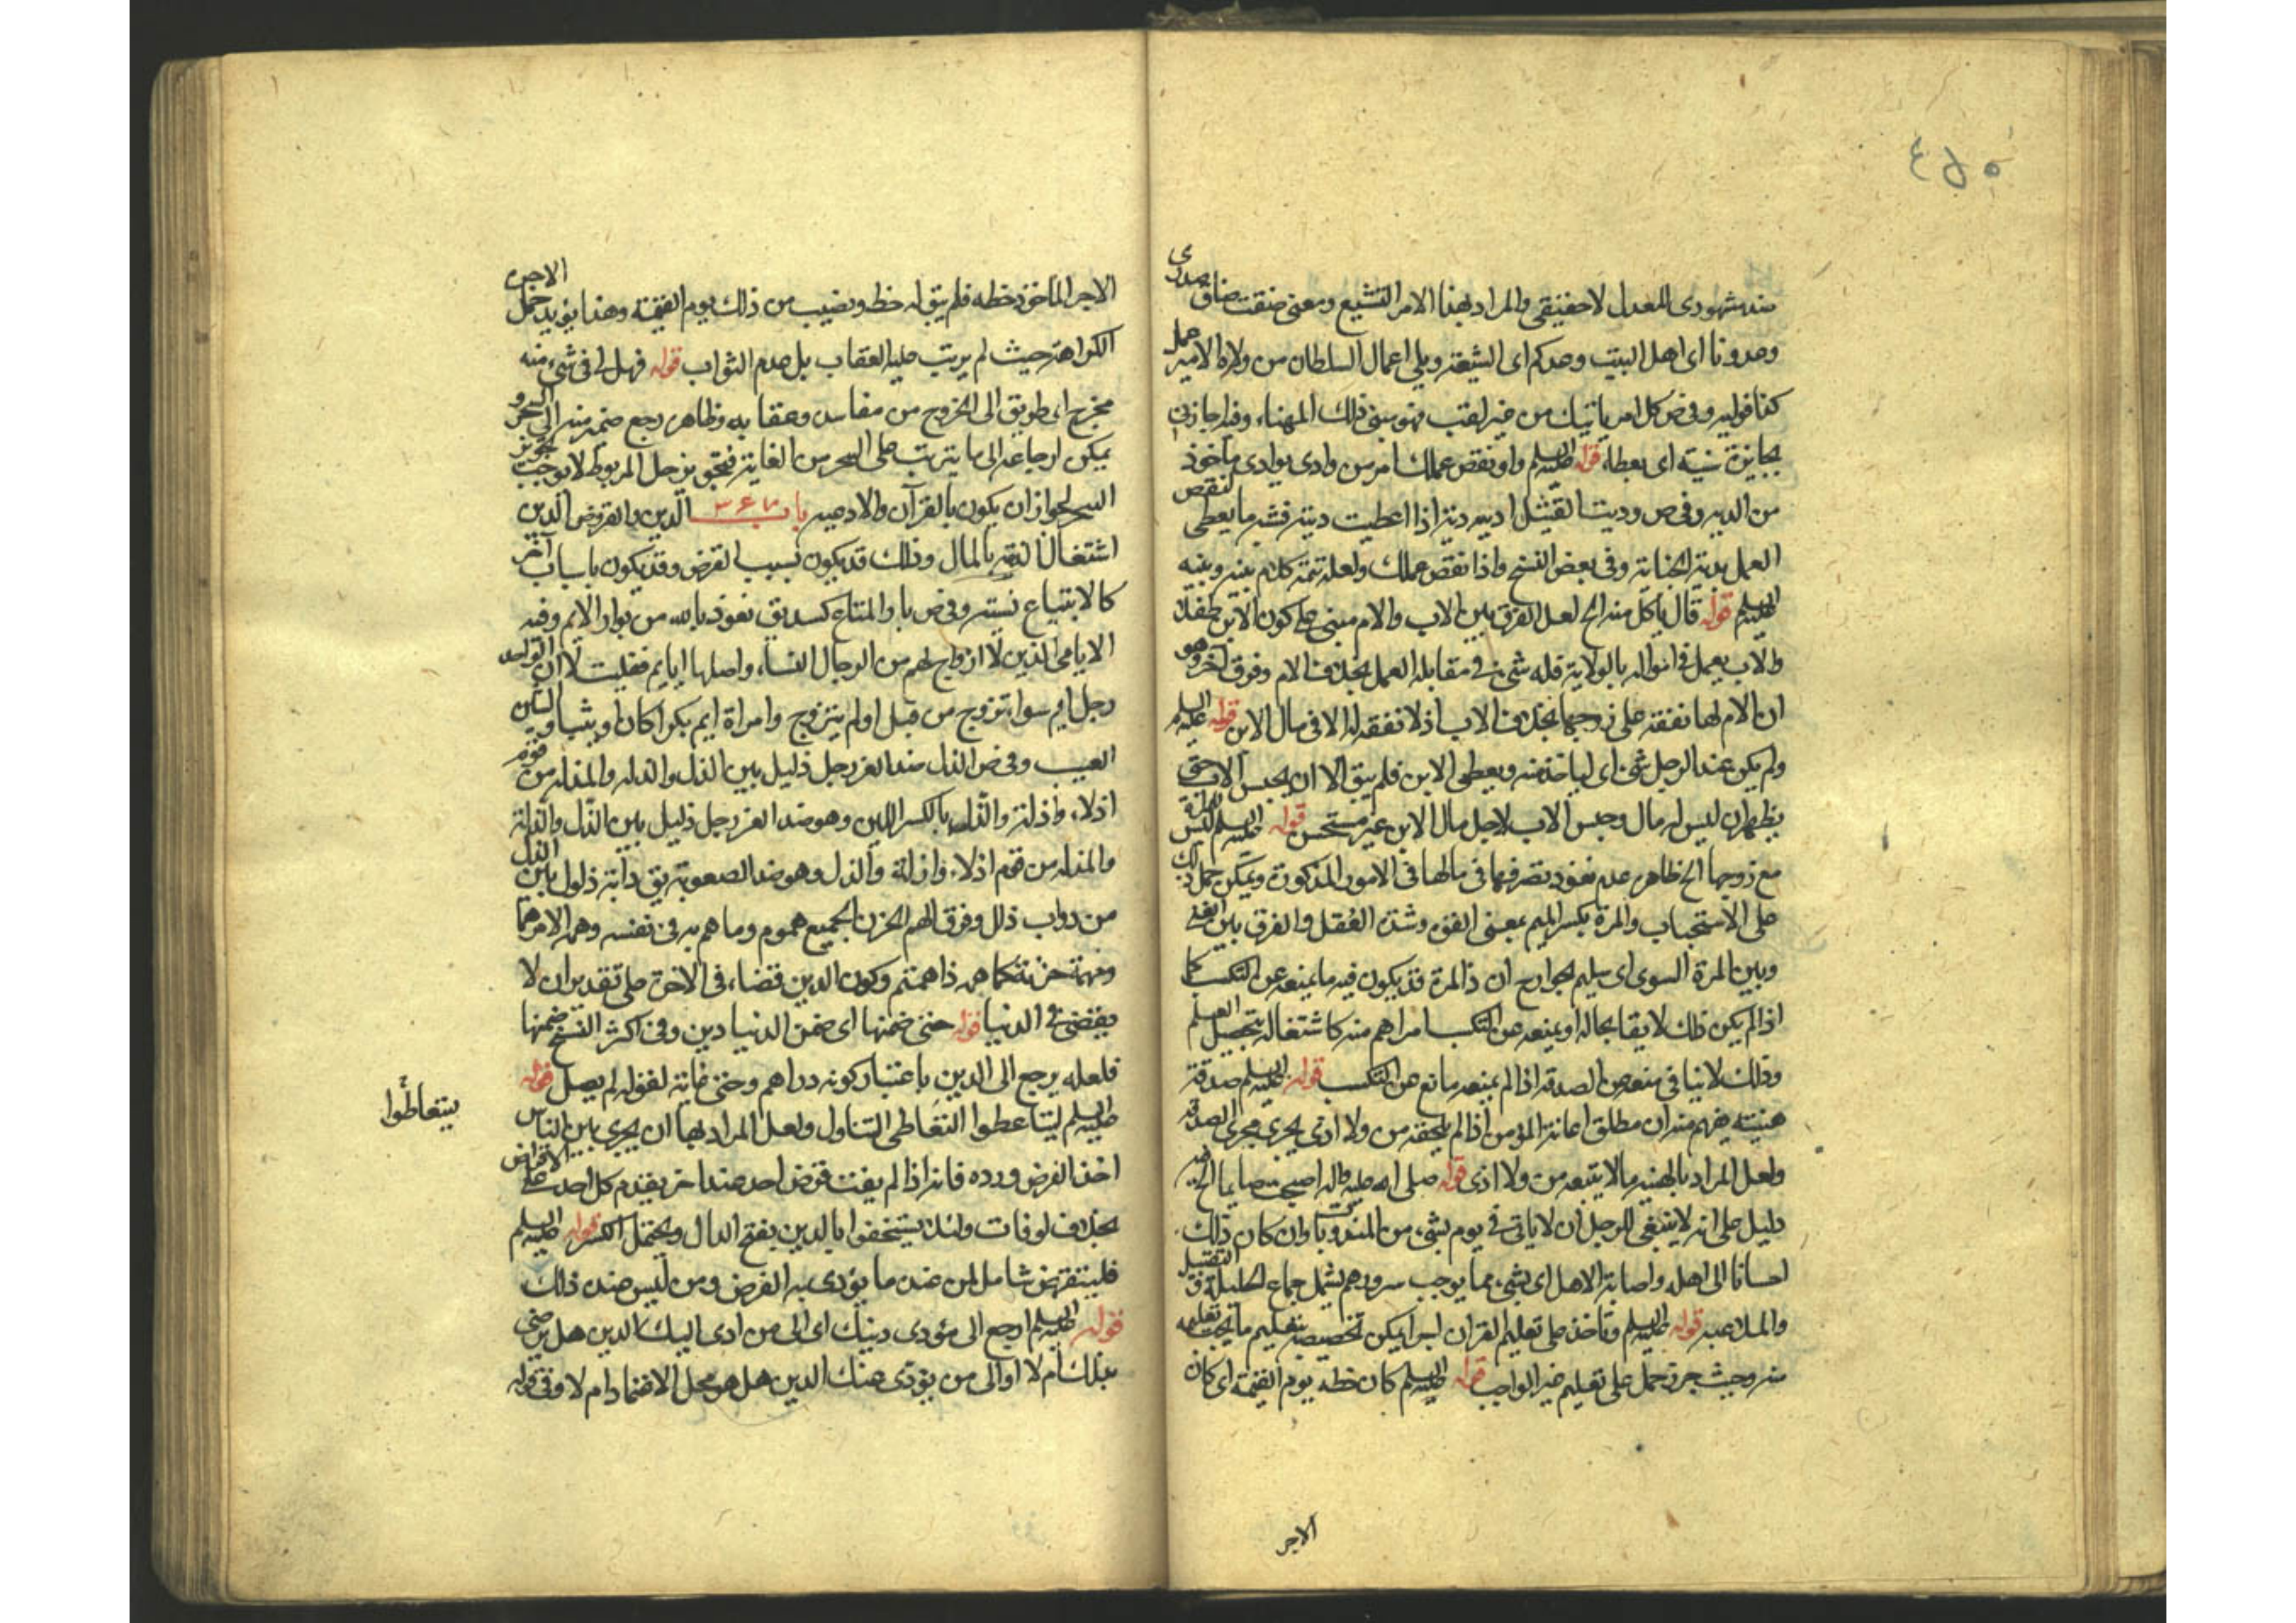 ضد شهودى المعدل لا حقيقى والمراد بهذا الامر التشيع ومعنى ضقت ضاق صدرى
وعدونا اى اهل البيت وعدكم اى الشيعة ويلى اعمال السلطان من ولاه الامير عمل
كذا فوليه وفى ص كل امر ياتيك من غير تعب فهو سيئ ذلك المهناء وقد اجازنى
بجائزة سنية اى بعطاء قوله عليه السلم واو نقص عملك امر من وادى يوادى مأخوذ
من الديه وفى ص وديت القتيل اديه دية اذا اعطيت ديته فشبه ما يعطى لنقص
العمل بدية الجناية وفى بعض النسخ واذا نقص عملك ولعله تتمة كلام بينه وبينه
عليه السلم قوله قال يأكل منه الخ لعل الفرق بين الاب والام مبنى على كون الابن طفلا
والاب يعمل فى امواله بالولاية فله شئ فى مقابله العمل بخلاف الام وفرق آخر وهو
ان الام لها نفقة على زوجها بخلاف الاب اذ لا نفقه له الا فى مال الابن قوله عليه السلم
ولم يكن عند الرجل شئ اى لياخذ منه ويعطى الابن فلم يبق الا ان يحبس الاب حتى
يظهر ان ليس له مال وحبس الاب لاجل مال الابن غير مستحسن قوله عليه السلم ليس للمراة
مع زوجها الخ ظاهره عدم نفوذ تصرفها فى مالها فى الامور المذكورة ويمكن حمل ذلك
على الاستحباب والمرة بكسر الميم بمعنى القوه وشدة العقل والفرق بين الغنى
وبين المرة السوى اى سليم الجوارح ان ذا المرة قد يكون فيه ما يمنعه عن التكسب كما
اذا لم يكن ذلك لايقا بحاله او يمنعه عن التكسب امر اهم منه كاشتغاله بتحصيل العلم
وذلك لا ينافى منعه من الصدقه اذا لم يمنعه مانع عن التكسب قوله عليه السلم صدقة
هنيئه يفهم منه ان مطلق اعانة المؤمن اذا لم يلحقه من ولا اذى يجرى مجرى الصدقه
ولعل المراد بالهنيه ما لا يتبعه من ولا اذى قوله صلى الله عليه واله اصبحت صايما الخ فيه
دليل على انه لا ينبغى للرجل ان لا ياتى فى يوم بشئ من المندوبات وان كان ذلك
احسانا الى اهله واصابة الاهل اى بشئ مما يوجب سرورهم يشمل جماع الحليلة و التقبيل
والملاعبه قوله عليه السلم وتأخذ على تعليم القران لبس ايمكن تخصيصه بتعليم ما يجب تعليمه
منه وحيث جرد حمل على تعليم غير الواجب قوله عليه السلم كان حظه يوم القيمة اى كان
الاجر
الاجر الماخوذ حظه فلم يبق له حظ ونصيب من ذلك يوم القيمة وهذا يؤيد حمل الاجرة
الكراهة حيث لم يرتب عليه العقاب بل عدم الثواب قوله فهل لى فى شئ منه
مخرج اى طريق الى الخروج من مفاسده وعقابه وظاهره رجع ضمير منه الى السحر و
يمكن ارجاعه الى ما يترتب على السحر من الغاية فتجويز حل المربوط لا يوجب تجويز
السحر لجواز ان يكون بالقرآن والادعيه باب ٣٤٧ الدين بالقروض الدين
اشتغال الذمه بالمال وذلك قد يكون بسبب القرض وقد يكون باسباب آخر
كالابتياع نسئة وفى ص بار المتاع كسد يق نعوذ بالله من بوار الايم وفيه
الايامى الذين لا ازواج لهم من الرجال النساء واصلها ايايم فقلبت لان الواحد
رجل ايم سواء تزوج من قبل اولم يتزوج وامراة ايم بكرا كان اوثيبا والشين
العيب وفى ص الذل ضد العز رجل ذليل بين الذل والذله والمذله من قوم
اذلاء واذلة والذل بالكسر اللين وهو ضد العز رجل ذليل بين الذل والذلة
والمذله من قوم اذلاء واذلة والذل وهو ضد الصعوبة يق دابة ذلول بين الذل
من دواب ذلل وفرق الهم الحزن الجميع هموم وما هم به فى نفسه وهمه الامر هما
ومهمة حزنه كاهمه ذا همتم وكون الدين قضاء فى الاخرة على تقدير ان لا
يقضى فى الدنيا قوله حتى ضمنها اى ضمن الدنيا دين وفى اكثر النسخ ضمنها
فلعله يرجع الى الدين باعتبار كونه دراهم وحتى غاية لقوله لم يصل قوله
عليه السلم ليتاعطوا التعاطى التناول ولعل المراد بها ان يجرى بين الناس
يتعاطوا
اخذ القرض ورده فانه اذا لم يفت قرض احد عند اخر يقدم كل احد على الاقراض
بخلاف لو فات ولئلا يستخفوا بالدين بفتح الدال ويحتمل الكسر قوله عليه السلم
فليستقرض شامل لمن عنده ما يؤدى به القرض ومن ليس عنده ذلك
قوله عليه السلم ارجع الى مؤدى دينك اى الى من ادى اليك الدين هل يرضى
بذلك ام لا او الى من يؤدى عنك الدين هل هو محل الاعتماد ام لا وفى قوله